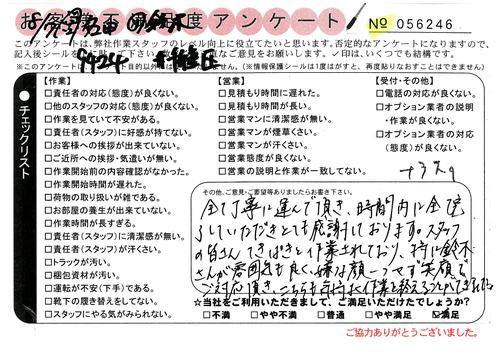 お客様不満足度アンケート
№ 056246
このアンケートは、弊社作業スタッフのレベル向上に役立てたいと思います。否定的なアンケートになりますので、
記入後シールを 貴重なご意見をお願い致します。✓印は、いくつでも結構です。
チェックリスト
【作業】
□責任者の対応(態度)が良くない。
□他のスタッフの対応(態度)が良くない。
□作業を見ていて不安がある。
□責任者(スタッフ)に好感が持てない。
□お客様への挨拶が出来ていない。
□ご近所への挨拶・気遣いが無い。
□作業開始前の内容確認がなかった。
□作業開始時間が遅れた。
□荷物の取り扱いが雑である。
□お部屋の養生が出来ていない。
□作業時間が長すぎる。
□責任者(スタッフ)に清潔感が無い。
□責任者(スタッフ)が汗くさい。
□トラックが汚い。
□梱包資材が汚い。
□運転が不安(下手)である。
□靴下の履き替えをしてない。
□スタッフにやる気がみられない。
【営業】
□見積もり時間に遅れた。
□見積もり時間が長い。
□営業マンに清潔感が無い。
□営業マンが煙草くさい。
□営業マンが汗くさい。
□営業態度が良くない。
□営業の説明と作業が一致してない。
【受付・その他】
□電話の対応が良くない。
□オプション業者の説明
・作業が良くない。
□オプション業者の対応
(態度)が良くない。
その他、ご意見・ご要望等ありましたらお書き下さい。
全て丁寧に運んで頂き、時間内に全て完
了していただきとても感謝しております。スタッフ
の皆さん てきぱきと作業されており、特に鈴木
さんが雰囲気も良く、嫌な顔一つせず笑顔で
ご対応頂き、こちらも気持よく作業を終えることができました。
☆当社をご利用いただきまして、ご満足いただけたでしょうか?
□不満 □やや不満 □普通 □やや満足 ☑満足
ご協力ありがとうございました。